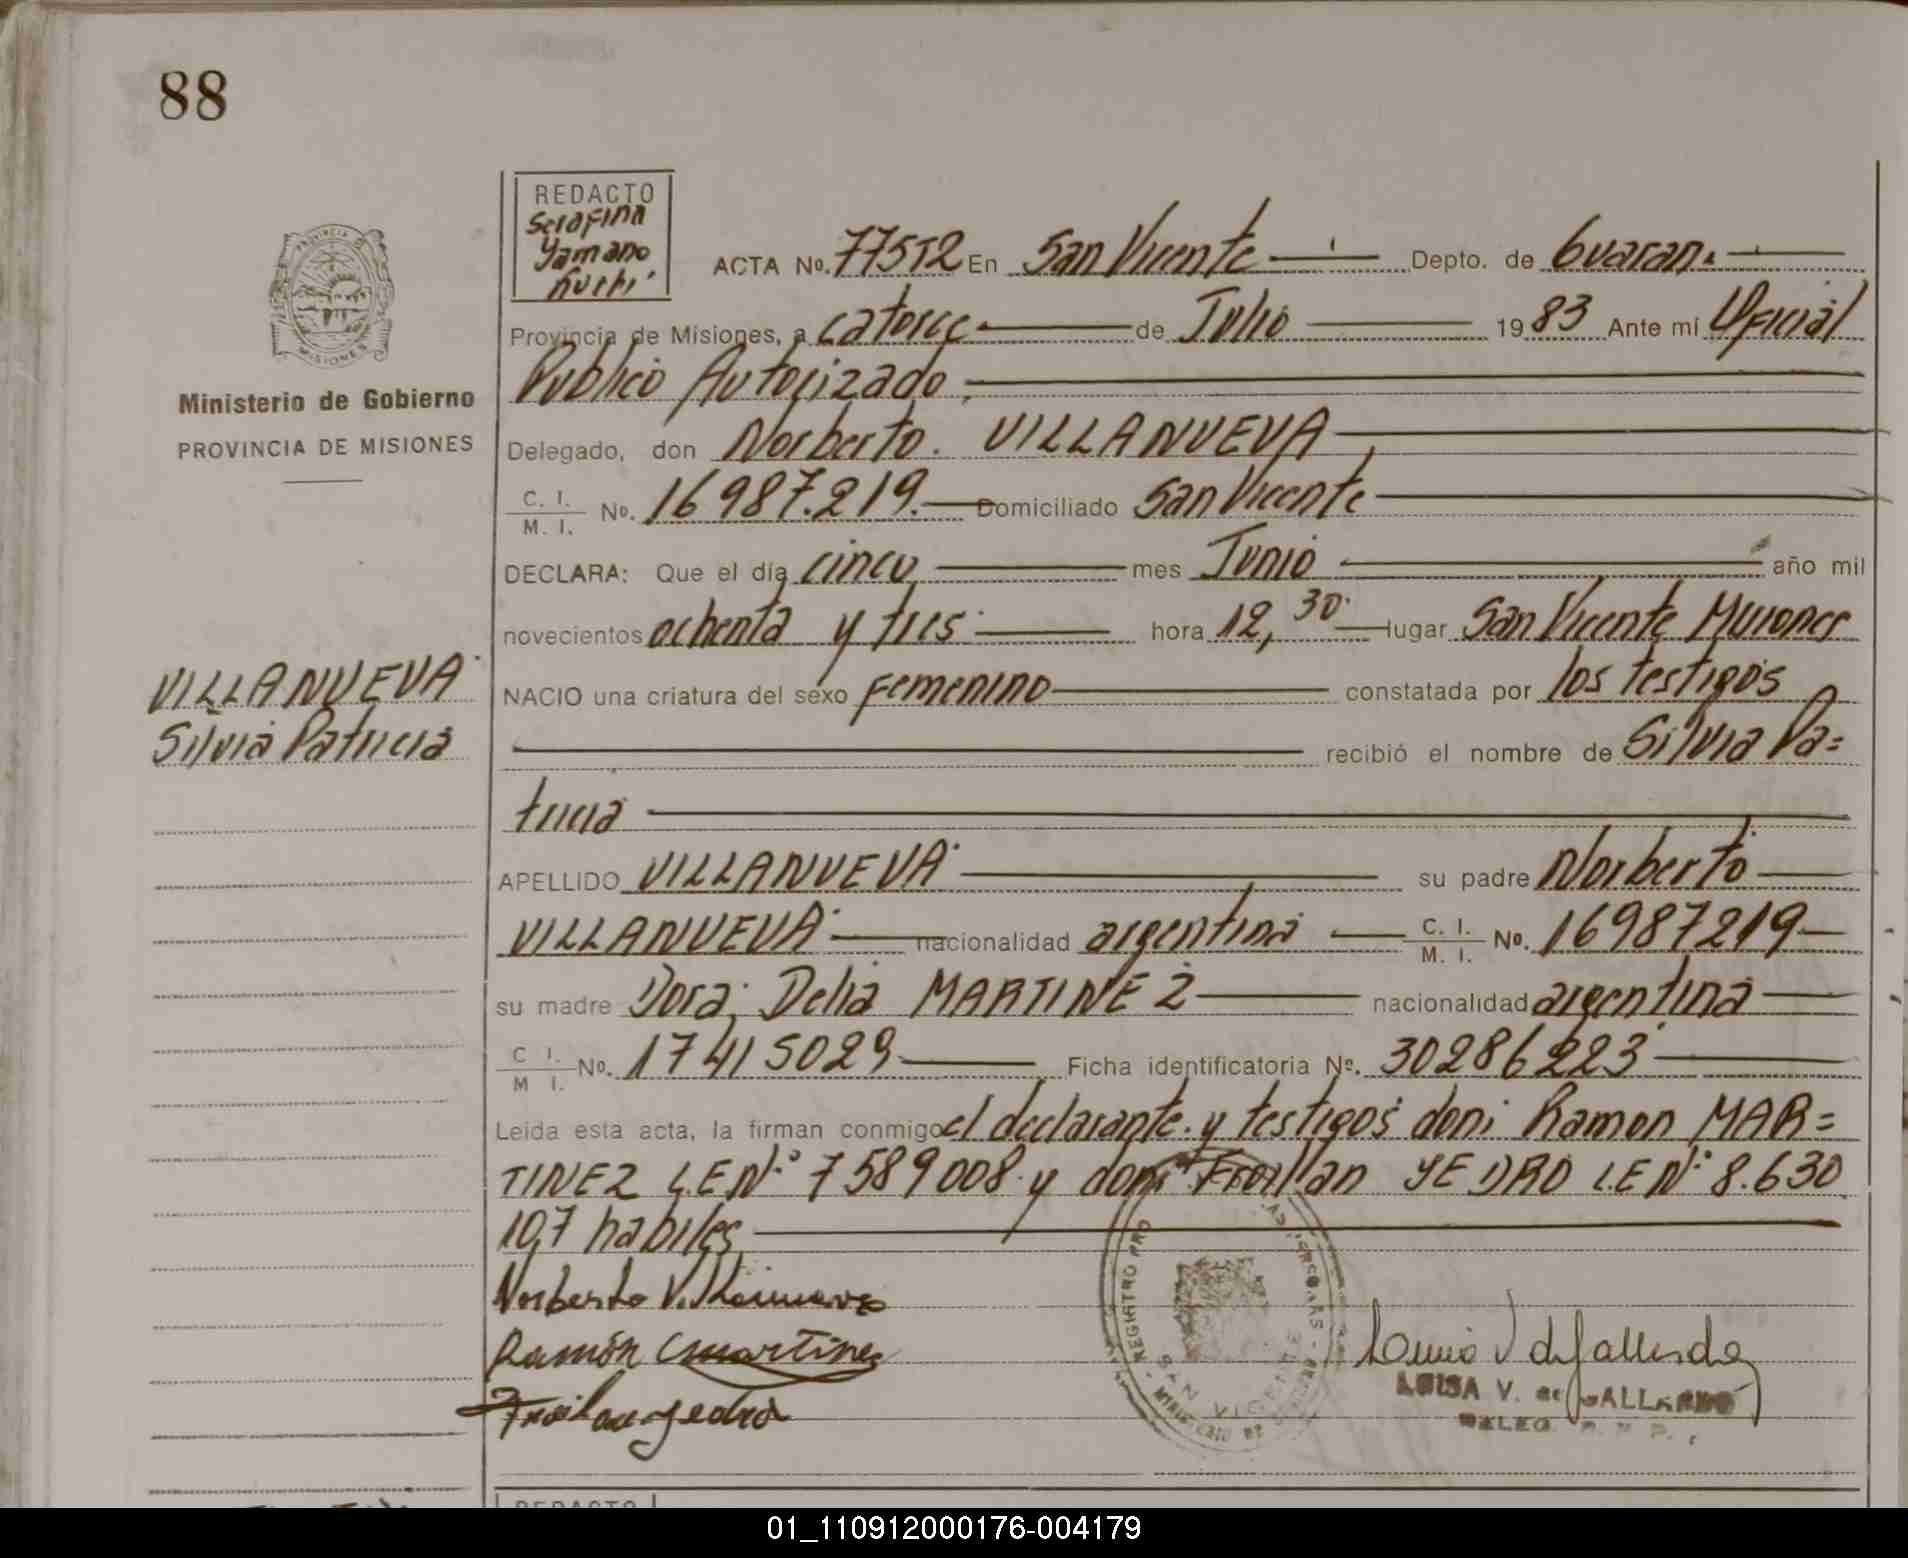 88
REDACTO
Serafina
Yamano
ACTA No. 77512 En San Vicente Depto. de Guarani
Provincia de Misiones, a catorce de Julio 1983 Ante mí Oficial
Publico Autorizado
Ministerio de Gobierno
PROVINCIA DE MISIONES
PROVINCIA DE
MISIONES
Delegado, don Norberto. VILLANUEVA
C. I.
M. I. No. 16987.219. Domiciliado San Vicente
DECLARA: Que el día cinco mes Junio año mil
novecientos ochenta y tres hora 12,30 lugar San Vicente Misiones
VILLANUEVA
Silvia Patricia
NACIO una criatura del sexo femenino constatada por los testigos
recibió el nombre de Silvia Pa=
tricia
APELLIDO VILLANUEVA su padre Norberto
VILLANUEVA nacionalidad argentina C. I.
M. I. No. 16987219
su madre Dora Delia MARTINEZ nacionalidad argentina
C. I.
M. I. No. 17415029 Ficha identificatoria No. 30286223
Leída esta acta, la firman conmigo el declarante y testigos don: Ramon MAR=
TINEZ L.E Nº 7589008 y don: Froilan YEDRO L.E Nº 8.630
107 habiles
Norberto Villanueva
Ramón Martinez
Froilan Yedro
SAN VICENTE
LUISA V. de GALLARDO
DELEG.
REDACTO
01_110912000176-004179